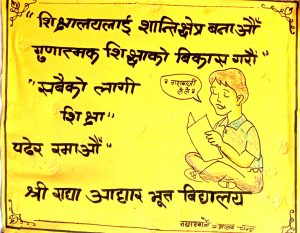 "शिक्षालयलाई शान्तिक्षेत्र बनाऔँ
गुणात्मक शिक्षाको बिकास गरौँ"
"सबैको लागी
शिक्षा"
पढेर रमाऔँ"
श्री राधा आधार भूत विद्यालय